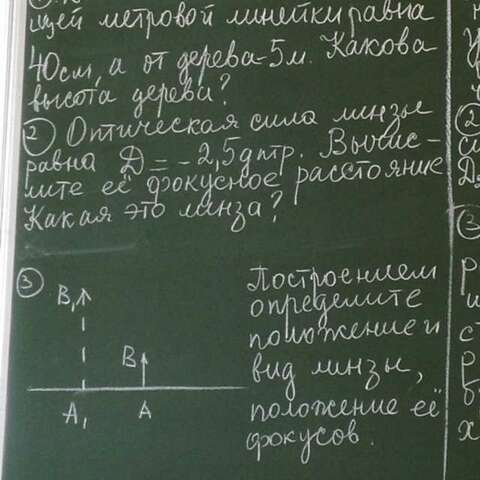 щей метровой линейки равна
40 см, а от дерева - 5 м. Какова
высота дерева?
② Оптическая сила линзы
равна D = - 2,5 дптр. Вычис-
лите её фокусное расстояние
Какая это линза?
③
B₁
B
A₁ A
Построением
определите
положение и
вид линзы,
положение её
фокусов.
②
③